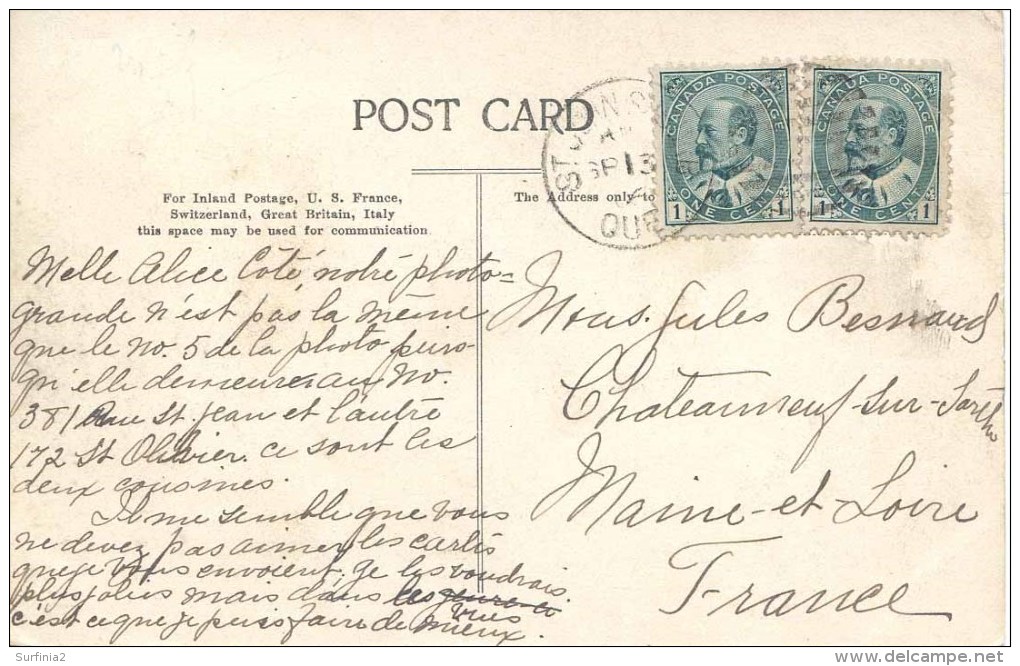 POST CARD
For Inland Postage, U. S. France,
Switzerland, Great Britain, Italy
this space may be used for communication
The Address only to
ST JOHN S
AM
SP 13
QUE
CANADA POSTAGE
1 ONE CENT 1
CANADA POSTAGE
1 ONE CENT 1
Melle Alice Coté, notre photo-
grande n'est pas la même
que le no. 5 de la photo puis-
qu'elle demeure au No.
381 Rue St. Jean et l'autre
172 St Olivier. ce sont les
deux cousines.
Il me semble que vous
ne devez pas aimer les cartes
que je vous envoient, je les voudrais
plus jolies mais dans les genre-ci
vues
c'est ce que je puis faire de mieux.
Mons. Jules Besnard
Chateauneuf-sur-Sarthe
Maine-et-Loire
France
Surfinia2
delcampe.net